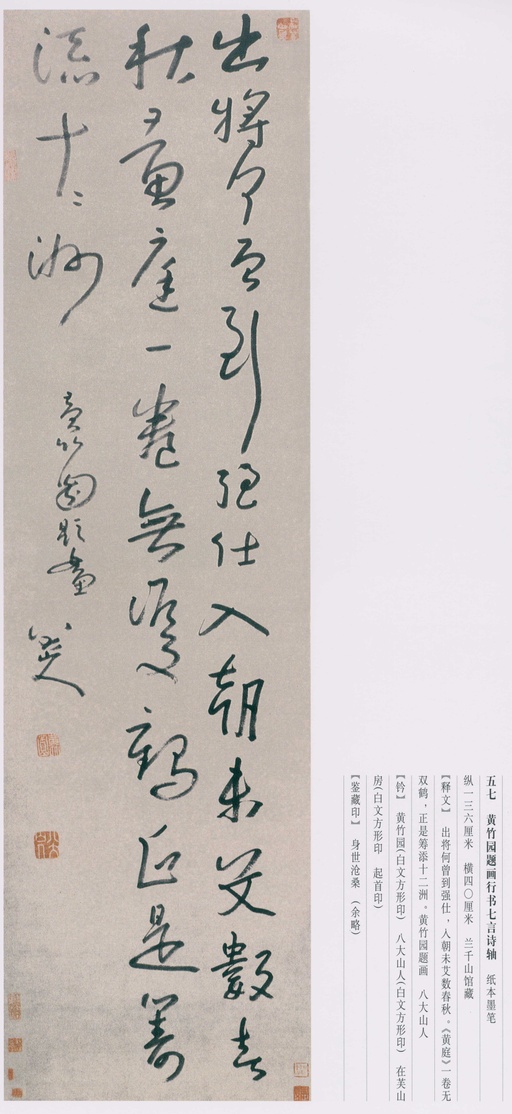 出將何曾到強仕入朝未艾數春
秋黃庭一卷無雙鶴正是籌
添十二洲
黃竹園題畫
八大山人
五七　黄竹园题画行书七言诗轴　纸本墨笔
纵一三六厘米　横四〇厘米　兰千山馆藏
【释文】　出将何曾到强仕，入朝未艾数春秋。《黄庭》一卷无
双鹤，正是筹添十二洲。黄竹园题画　八大山人
【钤】　黄竹园(白文方形印)　八大山人(白文方形印)　在芙山
房(白文方形印　起首印)
【鉴藏印】　身世沧桑　(余略)